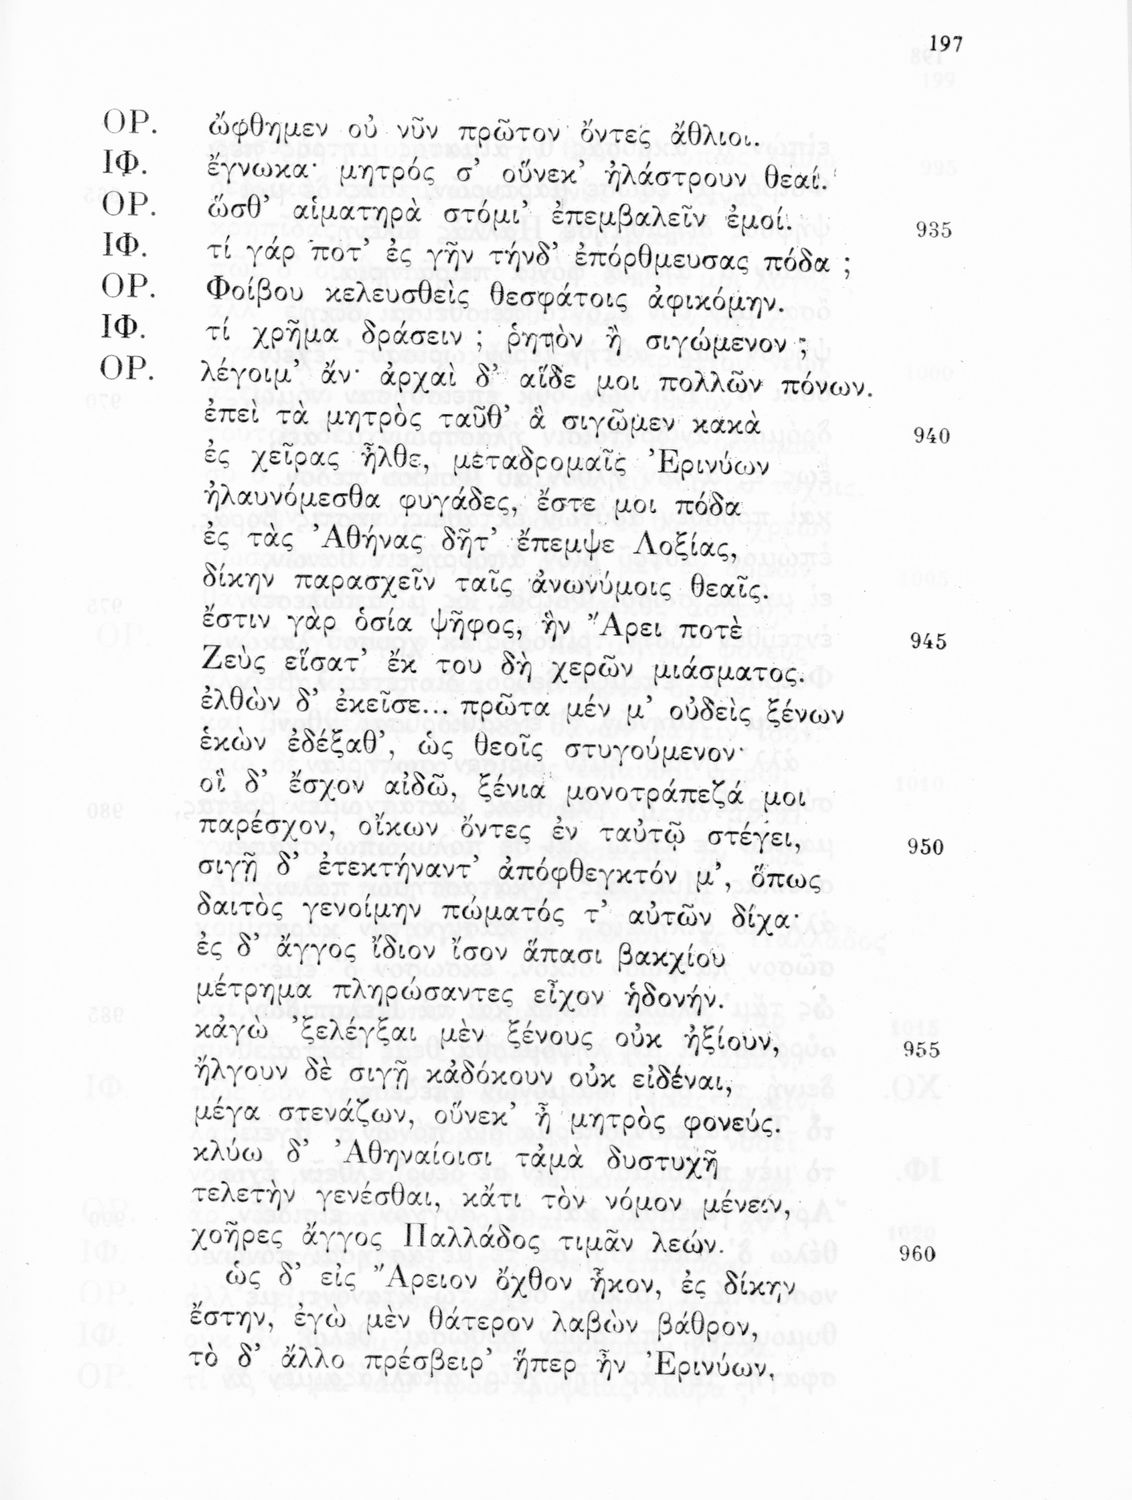 197
ΟΡ. ὤφθημεν οὐ νῦν πρῶτον ὄντες ἄθλιοι.
ΙΦ. ἔγνωκα· μητρός σ’ οὕνεκ’ ἠλάστρουν θεαί.
ΟΡ. ὥσθ’ αἱματηρὰ στόμι’ ἐπεμβαλεῖν ἐμοί. 935
ΙΦ. τί γάρ ποτ’ ἐς γῆν τήνδ’ ἐπόρθμευσας πόδα ;
ΟΡ. Φοίβου κελευσθεὶς θεσφάτοις ἀφικόμην.
ΙΦ. τί χρῆμα δράσειν ; ῥητὸν ἢ σιγώμενον ;
ΟΡ. λέγοιμ’ ἄν· ἀρχαὶ δ’ αἵδε μοι πολλῶν πόνων.
ἐπεὶ τὰ μητρὸς ταῦθ’ ἃ σιγῶμεν κακὰ 940
ἐς χεῖρας ἦλθε, μεταδρομαῖς Ἐρινύων
ἠλαυνόμεσθα φυγάδες, ἔστε μοι πόδα
ἐς τὰς Ἀθήνας δῆτ’ ἔπεμψε Λοξίας,
δίκην παρασχεῖν ταῖς ἀνωνύμοις θεαῖς.
ἔστιν γὰρ ὁσία ψῆφος, ἣν Ἄρει ποτὲ 945
Ζεὺς εἵσατ’ ἔκ του δὴ χερῶν μιάσματος.
ἐλθὼν δ’ ἐκεῖσε... πρῶτα μέν μ’ οὐδεὶς ξένων
ἑκὼν ἐδέξαθ’, ὡς θεοῖς στυγούμενον·
οἳ δ’ ἔσχον αἰδῶ, ξένια μονοτράπεζά μοι
παρέσχον, οἴκων ὄντες ἐν ταὐτῷ στέγει, 950
σιγῇ δ’ ἐτεκτήναντ’ ἀπόφθεγκτόν μ’, ὅπως
δαιτὸς γενοίμην πώματός τ’ αὐτῶν δίχα·
ἐς δ’ ἄγγος ἴδιον ἴσον ἅπασι βακχίου
μέτρημα πληρώσαντες εἶχον ἡδονήν.
κἀγὼ ’ξελέγξαι μὲν ξένους οὐκ ἠξίουν, 955
ἤλγουν δὲ σιγῇ κἀδόκουν οὐκ εἰδέναι,
μέγα στενάζων, οὕνεκ’ ἦ μητρὸς φονεύς.
κλύω δ’ Ἀθηναίοισι τἀμὰ δυστυχῆ
τελετὴν γενέσθαι, κἄτι τὸν νόμον μένειν,
χοῆρες ἄγγος Παλλάδος τιμᾶν λεών. 960
ὡς δ’ εἰς Ἄρειον ὄχθον ἧκον, ἐς δίκην
ἔστην, ἐγὼ μὲν θάτερον λαβὼν βάθρον,
τὸ δ’ ἄλλο πρέσβειρ’ ἥπερ ἦν Ἐρινύων,